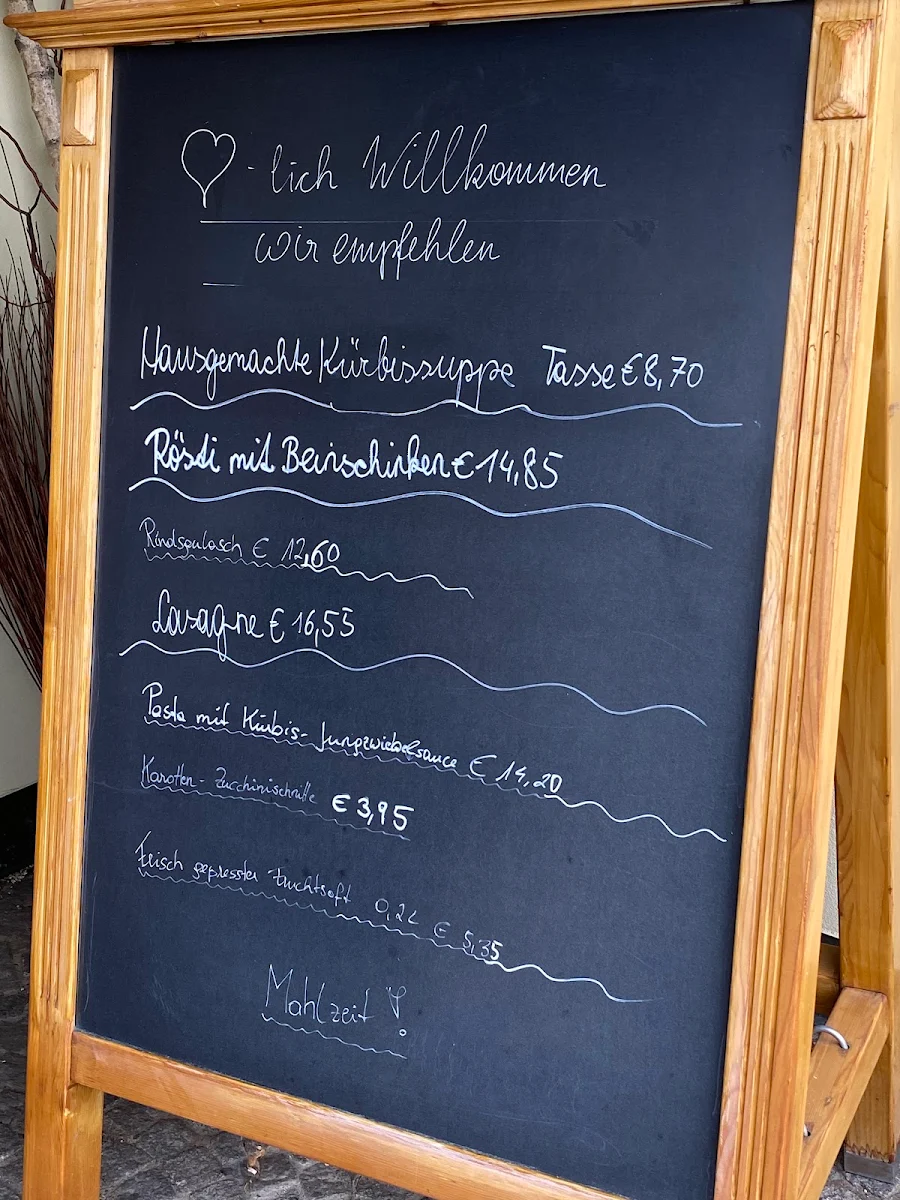 ♡-lich Willkommen
wir empfehlen
Hausgemachte Kürbissuppe Tasse € 8,70
Rösti mit Beinschinken € 14,85
Rindsgulasch € 12,60
Lasagne € 16,55
Pasta mit Kürbis-Jungzwiebelsauce € 14,20
Karotten-Zucchinischnitte € 3,95
Frisch gepresster Fruchtsaft 0,2L € 5,35
Mahlzeit !